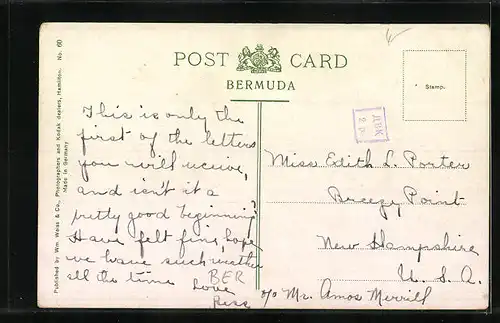 POST CARD
BERMUDA
Stamp.
Published by Wm Weiss & Co., Photographers and Kodak dealers, Hamilton. No. 60
Made in Germany
This is only the
first of the letters
you will receive,
and isn't it a
pretty good beginning?
Have felt fine, hope
we have such weather
all the time
BER
Love
Bess
Miss Edith L. Porter
Breezy Point
New Hampshire
U. S. A.
c/o Mr. Amos Merrill